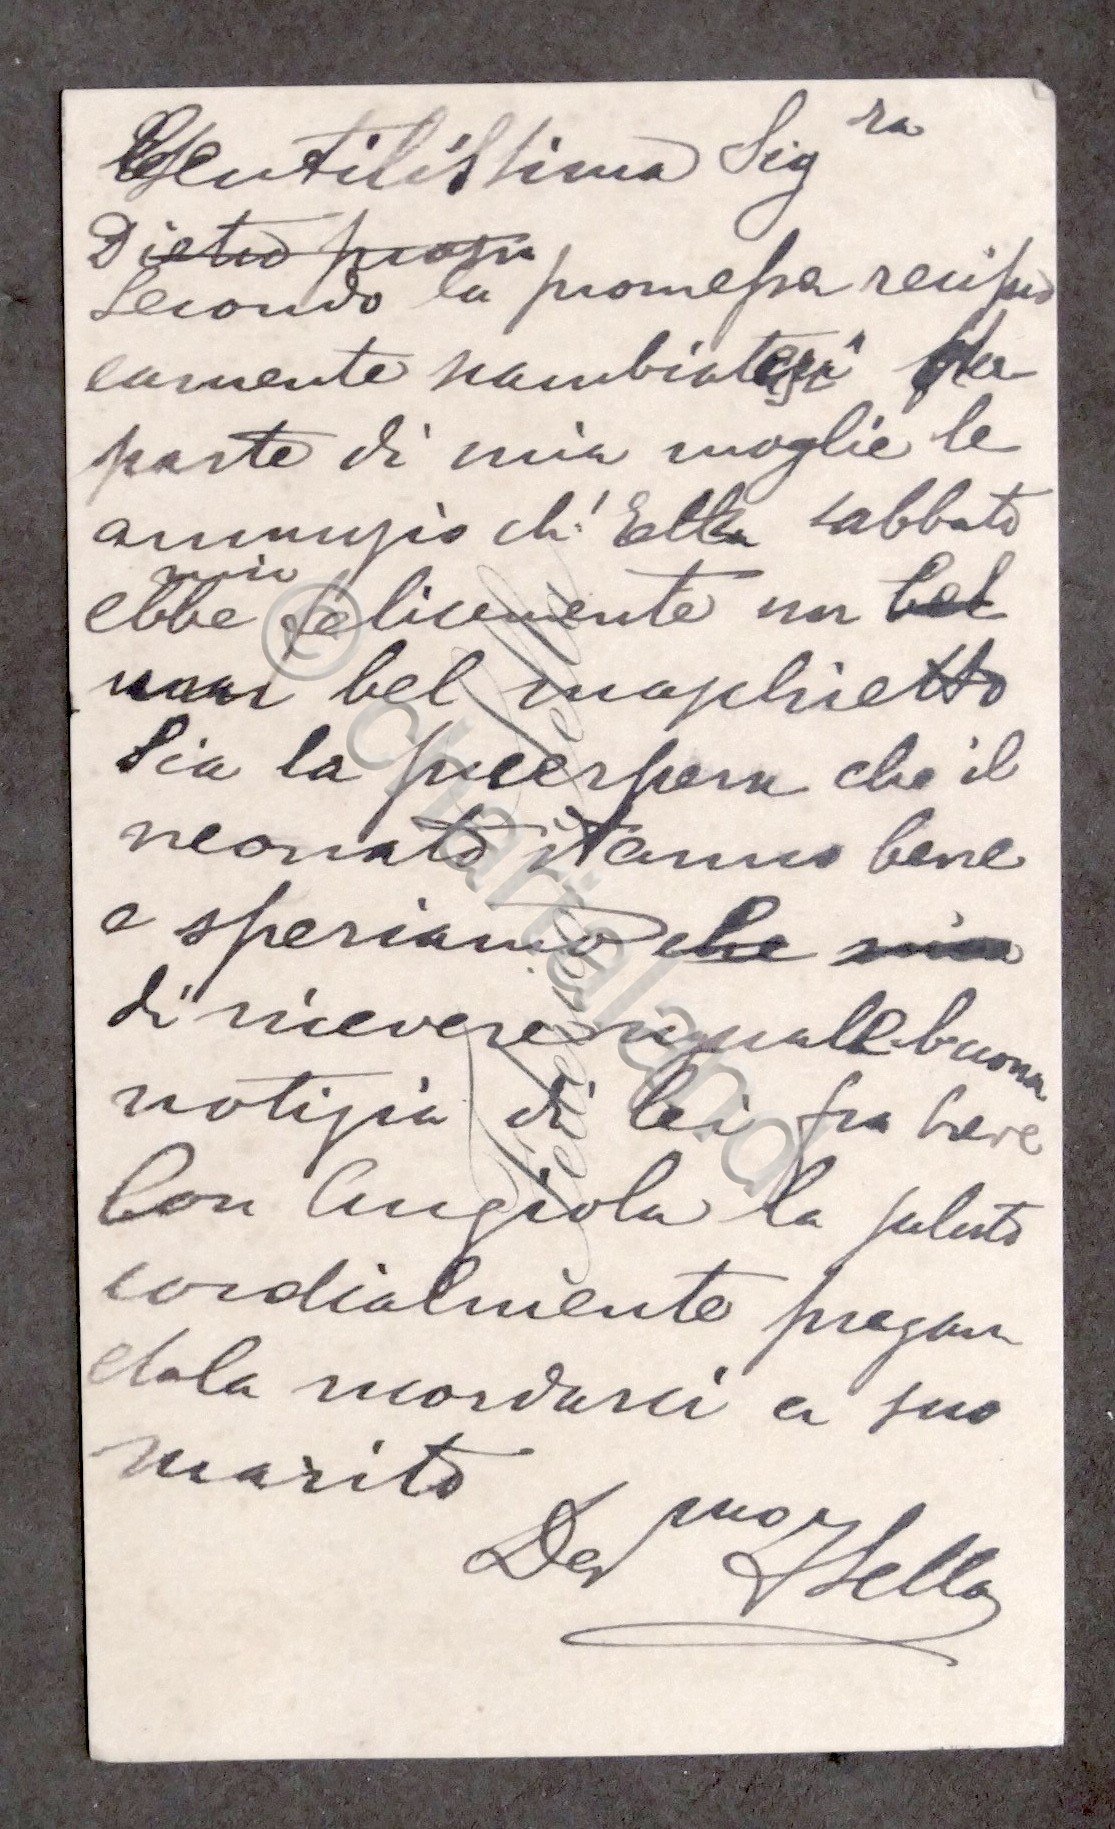 Gentilissima Sig.ra
Dietro
Secondo la promessa recipro
camente scambiatesi
parte di mia moglie le
annunzio ch' Ella sabbato
ebbe felicemente un bel
bel maschietto
Sia la puerpera che il
neonato stanno bene
e speriamo che
di ricevere uguale buona
notizia di lei fra breve
Con Angiola la saluto
cordialmente pregan
dola ricordarci a suo
marito
Dev mo V Sella
© charialand